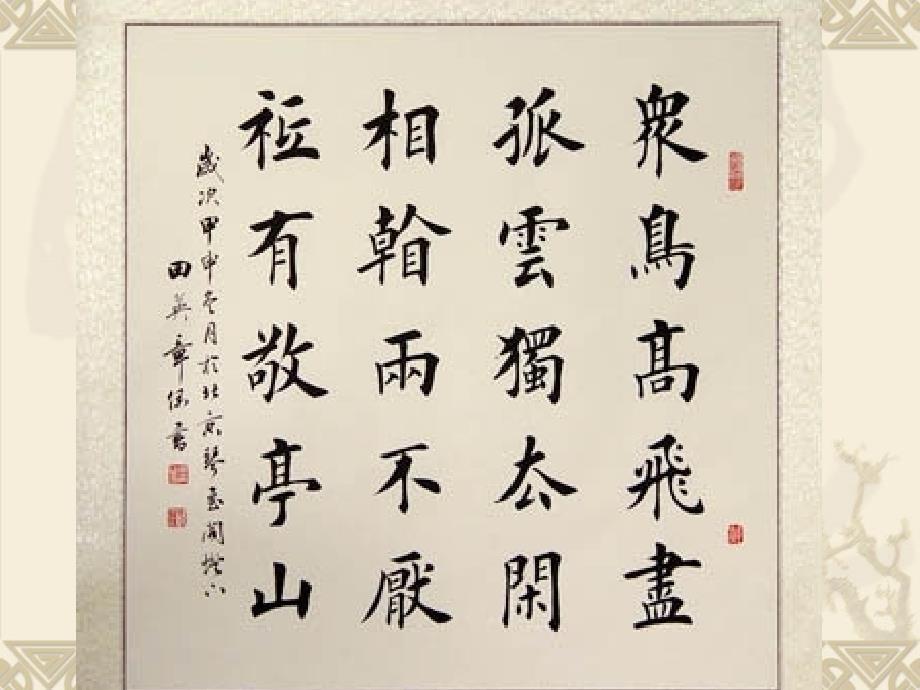 衆鳥髙飛盡
孤雲獨厺閑
相看兩不厭
祇有敬亭山
歲次甲申冬月於北京琴閣燈下
田英章書